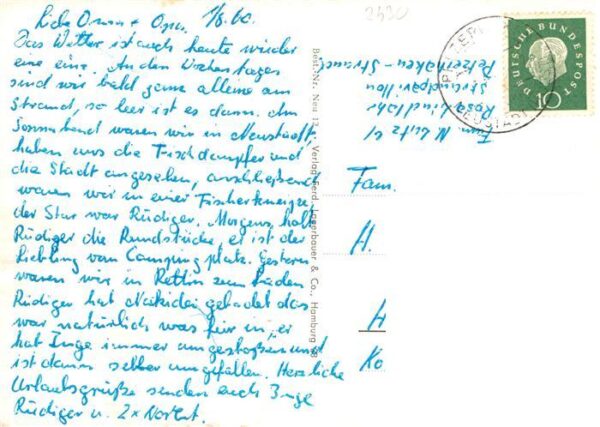 Liebe Oma + Opa. 1/8.60.
Das Wetter ist auch heute wieder
eine eins. An den Wochentagen
sind wir bald ganz alleine am
Strand, so leer ist es dann. Am
Sonnabend waren wir in Neustadt,
haben uns die Fischdampfer und
die Stadt angesehen, anschließend
waren wir in einer Fischerkneipe,
der Star war Rüdiger. Morgens holt
Rüdiger die Rundstücke, er ist der
Liebling vom Campingplatz. Gestern
waren wir in Rettin zum baden
Rüdiger hat gebadet das
war natürlich was für ihn, er
hat Inge immer umgestoßen und
ist dann selber umgefallen. Herzliche
Urlaubsgrüße senden euch Inge
Rüdiger u. 2x
Best.-Nr. Neu 13 Verlag Ferd. Lagerbauer & Co., Hamburg 48
2430
DEUTSCHE BUNDESPOST
10
Pelzerhaken - Strand
Strandpavillon
Rosa Lindlahr
Fam.
H.
H
Ko